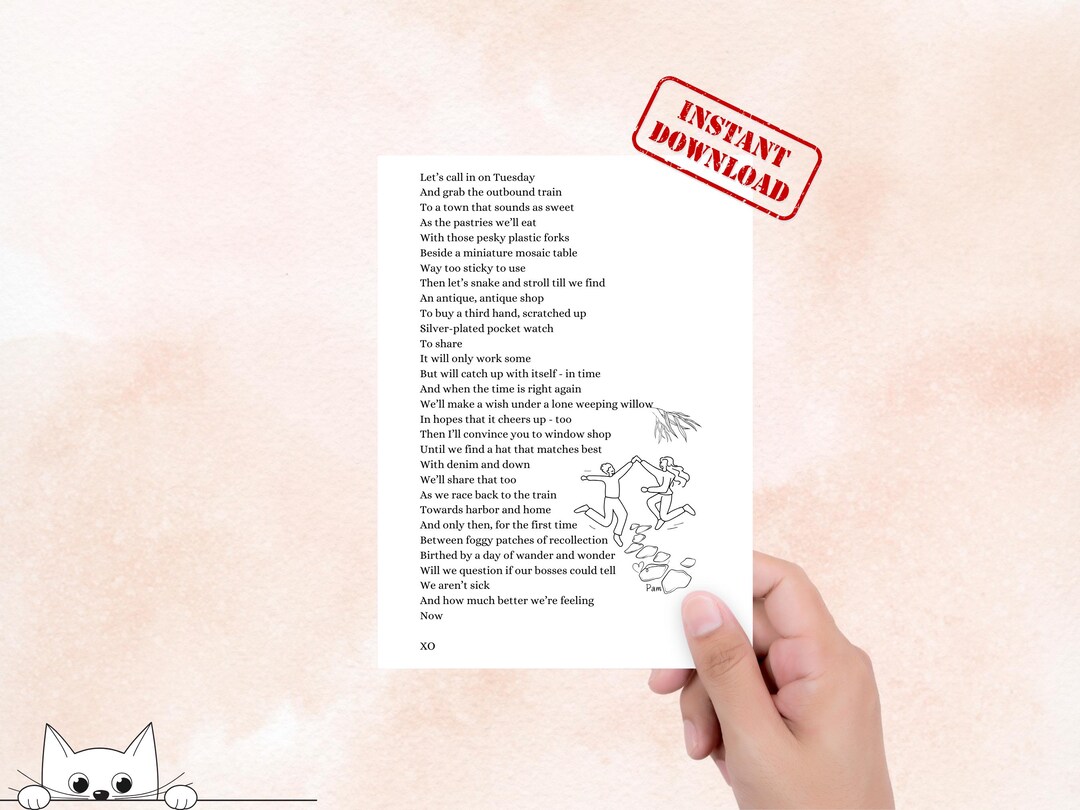 INSTANT
DOWNLOAD
Let's call in on Tuesday
And grab the outbound train
To a town that sounds as sweet
As the pastries we'll eat
With those pesky plastic forks
Beside a miniature mosaic table
Way too sticky to use
Then let's snake and stroll till we find
An antique, antique shop
To buy a third hand, scratched up
Silver-plated pocket watch
To share
It will only work some
But will catch up with itself - in time
And when the time is right again
We'll make a wish under a lone weeping willow
In hopes that it cheers up - too
Then I'll convince you to window shop
Until we find a hat that matches best
With denim and down
We'll share that too
As we race back to the train
Towards harbor and home
And only then, for the first time
Between foggy patches of recollection
Birthed by a day of wander and wonder
Will we question if our bosses could tell
We aren't sick
And how much better we're feeling
Now
XO
Pam